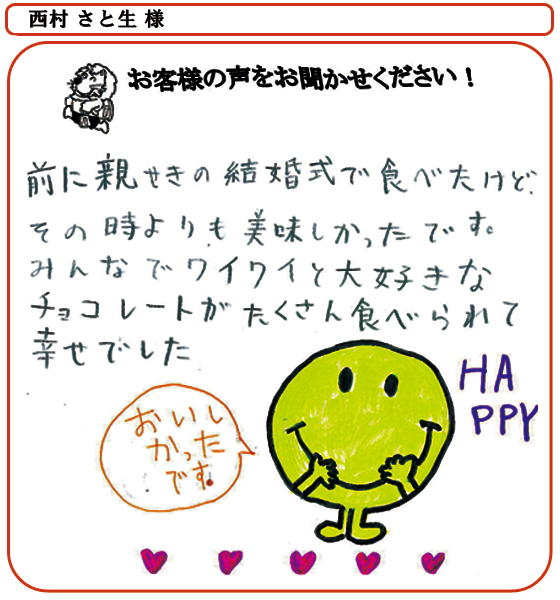 西村 さと生 様
お客様の声をお聞かせください！
前に親せきの結婚式で食べたけど、
その時よりも美味しかったです。
みんなでワイワイと大好きな
チョコレートがたくさん食べられて
幸せでした
HA
PPY
おいし
かった
です。